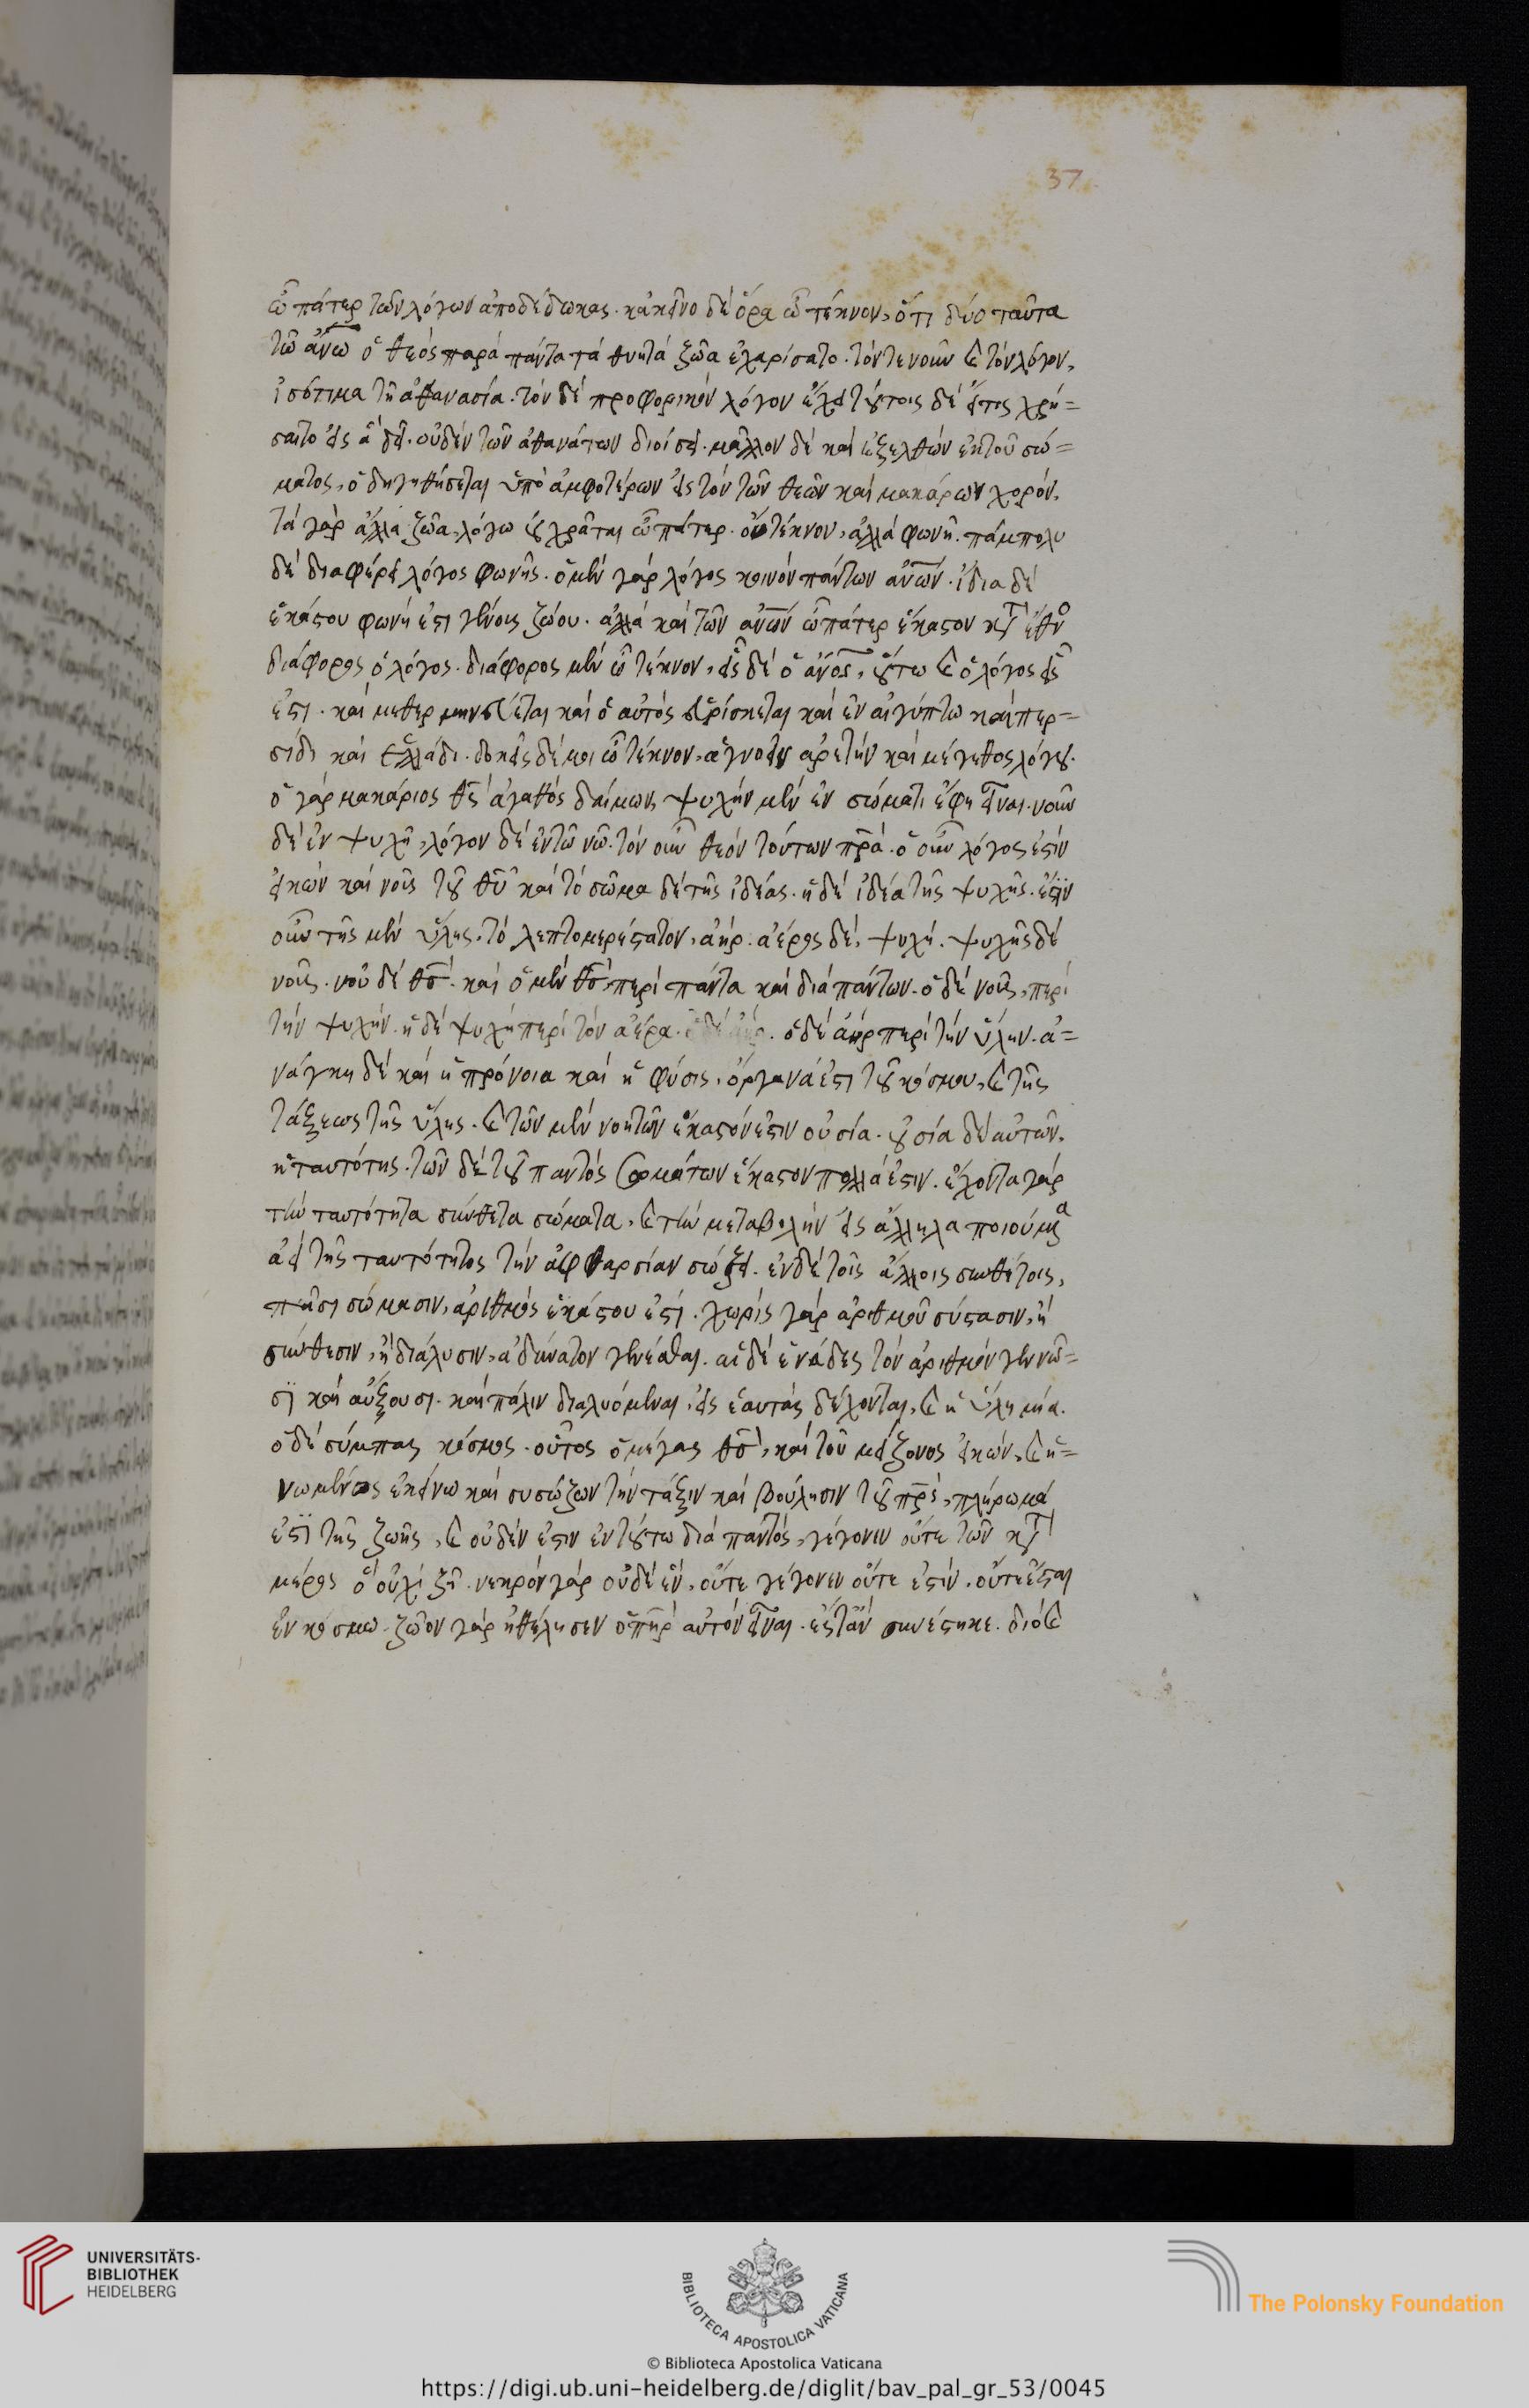 37
ὦ πάτερ τῶν λόγων ἀποδέδωκας. κἀκεῖνο δὲ ὅρα ὦ τέκνον, ὅτι δύο ταῦτα
τῶ ἀνω ὁ θεὸς παρὰ πάντα τὰ θνητὰ ζῶα ἐχαρίσατο. τόν τε νοῦν καὶ τὸν λόγον,
ἰσότιμα τῆ ἀθανασία. τὸν δὲ προφορικὸν λόγον ἔχει τούτοις δὲ εἴ τις χρή=
σαιτο εἰς ἃ δεῖ. οὐδὲν τῶν ἀθανάτων διοίσει. μᾶλλον δὲ καὶ ἐξελθὼν ἐκ τοῦ σώ=
ματος, ὁδηγηθήσεται ὑπὸ ἀμφοτέρων εἰς τὸν τῶν θεῶν καὶ μακάρων χορόν.
τὰ γὰρ ἄλλα ζῶα, λόγω οὐ χρᾶται ὦ πάτερ. οὒ τέκνον, ἀλλὰ φωνῆ. πάμπολυ
δὲ διαφέρει λόγος φωνῆς. ὁ μὲν γὰρ λόγος κοινὸν πάντων ἀνων. ἰδία δὲ
ἑκάστου φωνή ἐστι γένους ζώου. ἀλλὰ καὶ τῶν ἀνων ὦ πάτερ ἕκαστον κατ ἔθνο
διάφορος ὁ λόγος. διάφορος μὲν ὦ τέκνον, εἷς δὲ ὁ ἀνος, οὕτω καὶ ὁ λόγος εἷς
ἐστι. καὶ μεθερμηνεύεται καὶ ὁ αὐτὸς εὑρίσκεται καὶ ἐν αἰγύπτω καὶ περ=
σίδι καὶ ἑλλάδι. δοκεῖς δέ μοι ὦ τέκνον, ἀγνοεῖν ἀρετὴν καὶ μέγεθος λόγου.
ὁ γὰρ μακάριος θς ἀγαθὸς δαίμων, ψυχὴν μὲν ἐν σώματι ἔφη εἶναι. νοῦν
δὲ ἐν ψυχῆ, λόγον δὲ ἐν τῶ νῶ. τὸν οὖν θεὸν τούτων πρα. ὁ οὖν λόγος ἐστὶν
εἰκὼν καὶ νοῦς τοῦ θυ καὶ τὸ σῶμα δὲ τῆς ἰδέας. ἡ δὲ ἰδέα τῆς ψυχῆς. ἔστιν
οὖν τῆς μὲν ὕλης, τὸ λεπτομερέστατον, ἀήρ. ἀέρος δὲ, ψυχή. ψυχῆς δὲ
νοῦς. νοῦ δὲ θς. καὶ ὁ μὲν θς, περὶ πάντα καὶ διὰ πάντων. ὁ δὲ νοῦς, περὶ
τὴν ψυχήν. ἡ δὲ ψυχὴ περὶ τὸν ἀέρα. ὁ δὲ ἀὴρ περὶ τὴν ὕλην. ἀ=
νάγκη δὲ καὶ ἡ πρόνοια καὶ ἡ φύσις, ὄργανά ἐστι τοῦ κόσμου, καὶ τῆς
τάξεως τῆς ὕλης. καὶ τῶν μὲν νοητῶν ἕκαστόν ἐστιν οὐσία. οὐσία δὲ αὐτῶν,
ἡ ταυτότης. τῶν δὲ τοῦ παντὸς σωμάτων ἕκαστον πολλά ἐστιν. ἔχοντα γὰρ
τὴν ταυτότητα σύνθετα σώματα, καὶ τὴν μεταβολὴν εἰς ἄλληλα ποιούμενα
ἀεὶ τῆς ταυτότητος τὴν ἀφθαρσίαν σώζει. ἐν δὲ τοῖς ἄλλοις συνθέτοις,
πᾶσι σώμασιν, ἀριθμὸς ἑκάστου ἐστί. χωρὶς γὰρ ἀριθμοῦ σύστασιν, ἢ
σύνθεσιν, ἢ διάλυσιν, ἀδύνατον γενέσθαι. αἱ δὲ ἑνάδες τὸν ἀριθμὸν γεννῶ=
σι καὶ αὔξουσι. καὶ πάλιν διαλυόμεναι, εἰς ἑαυτὰς δέχονται, καὶ ἡ ὕλη μία.
ὁ δὲ σύμπας κόσμος. οὗτος ὁ μέγας θς, καὶ τοῦ μείζονος εἰκών, καὶ ἡ=
νωμένος ἐκείνω καὶ συσώζων τὴν τάξιν καὶ βούλησιν τοῦ πρς, πλήρωμά
ἐστι τῆς ζωῆς, καὶ οὐδέν ἐστιν ἐν τούτω διὰ παντὸς, γέγονεν οὔτε τῶν κατ
μέρος ὃ οὐχὶ ζῆ. νεκρὸν γὰρ οὐδὲ ἓν, οὔτε γέγονεν οὔτε ἐστίν. οὔτε ἔσται
ἐν κόσμω. ζῶον γὰρ ἠθέλησεν ὁ πηρ αὐτὸν εἶναι. ἔστ᾽ ἂν συνέστηκε. διὸ καὶ
UNIVERSITÄTS-
BIBLIOTHEK
HEIDELBERG
BIBLIOTECA APOSTOLICA VATICANA
The Polonsky Foundation
© Biblioteca Apostolica Vaticana
https://digi.ub.uni-heidelberg.de/diglit/bav_pal_gr_53/0045